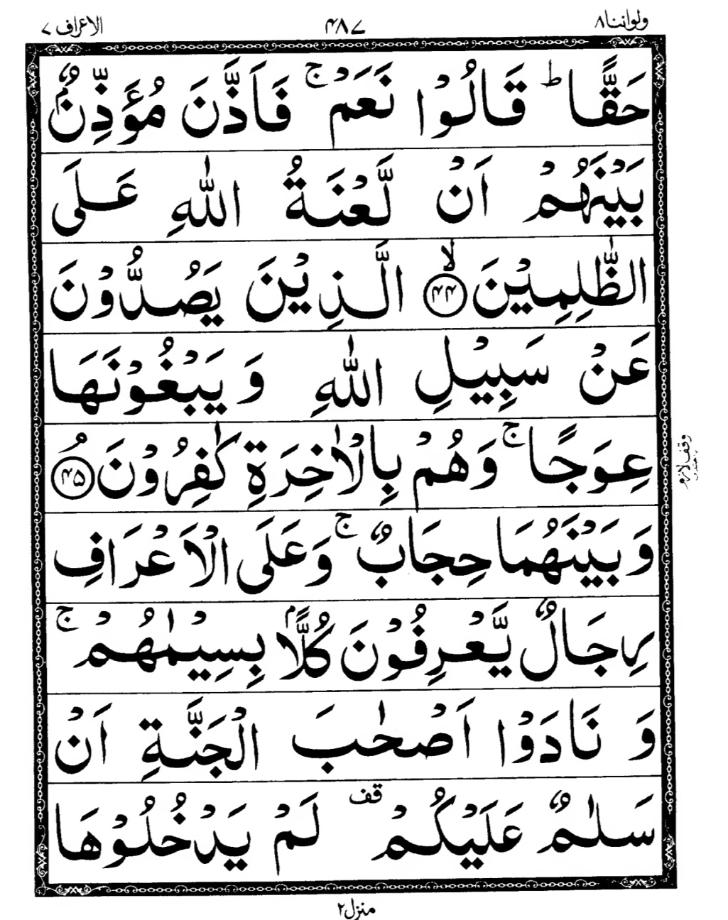 ولواننا ٨ ۴٨٧ الاعراف ٧
حَقًّا ؕ قَالُوْا نَعَمْ ۚ فَاَذَّنَ مُؤَذِّنٌۢ
بَيْنَهُمْ اَنْ لَّعْنَةُ اللّٰهِ عَلَى
الظّٰلِمِيْنَ ۙ﴿۴۴﴾ الَّذِيْنَ يَصُدُّوْنَ
عَنْ سَبِيْلِ اللّٰهِ وَ يَبْغُوْنَهَا
عِوَجًا ۚ وَهُمْ بِالْاٰخِرَةِ كٰفِرُوْنَ ۘ﴿۴۵﴾
وقف لازم
وَبَيْنَهُمَا حِجَابٌ ۚ وَعَلَى الْاَعْرَافِ
رِجَالٌ يَّعْرِفُوْنَ كُلًّاۢ بِسِيْمٰىهُمْ ۚ
وَ نَادَوْا اَصْحٰبَ الْجَنَّةِ اَنْ
سَلٰمٌ عَلَيْكُمْ قف لَمْ يَدْخُلُوْهَا
منزل ٢